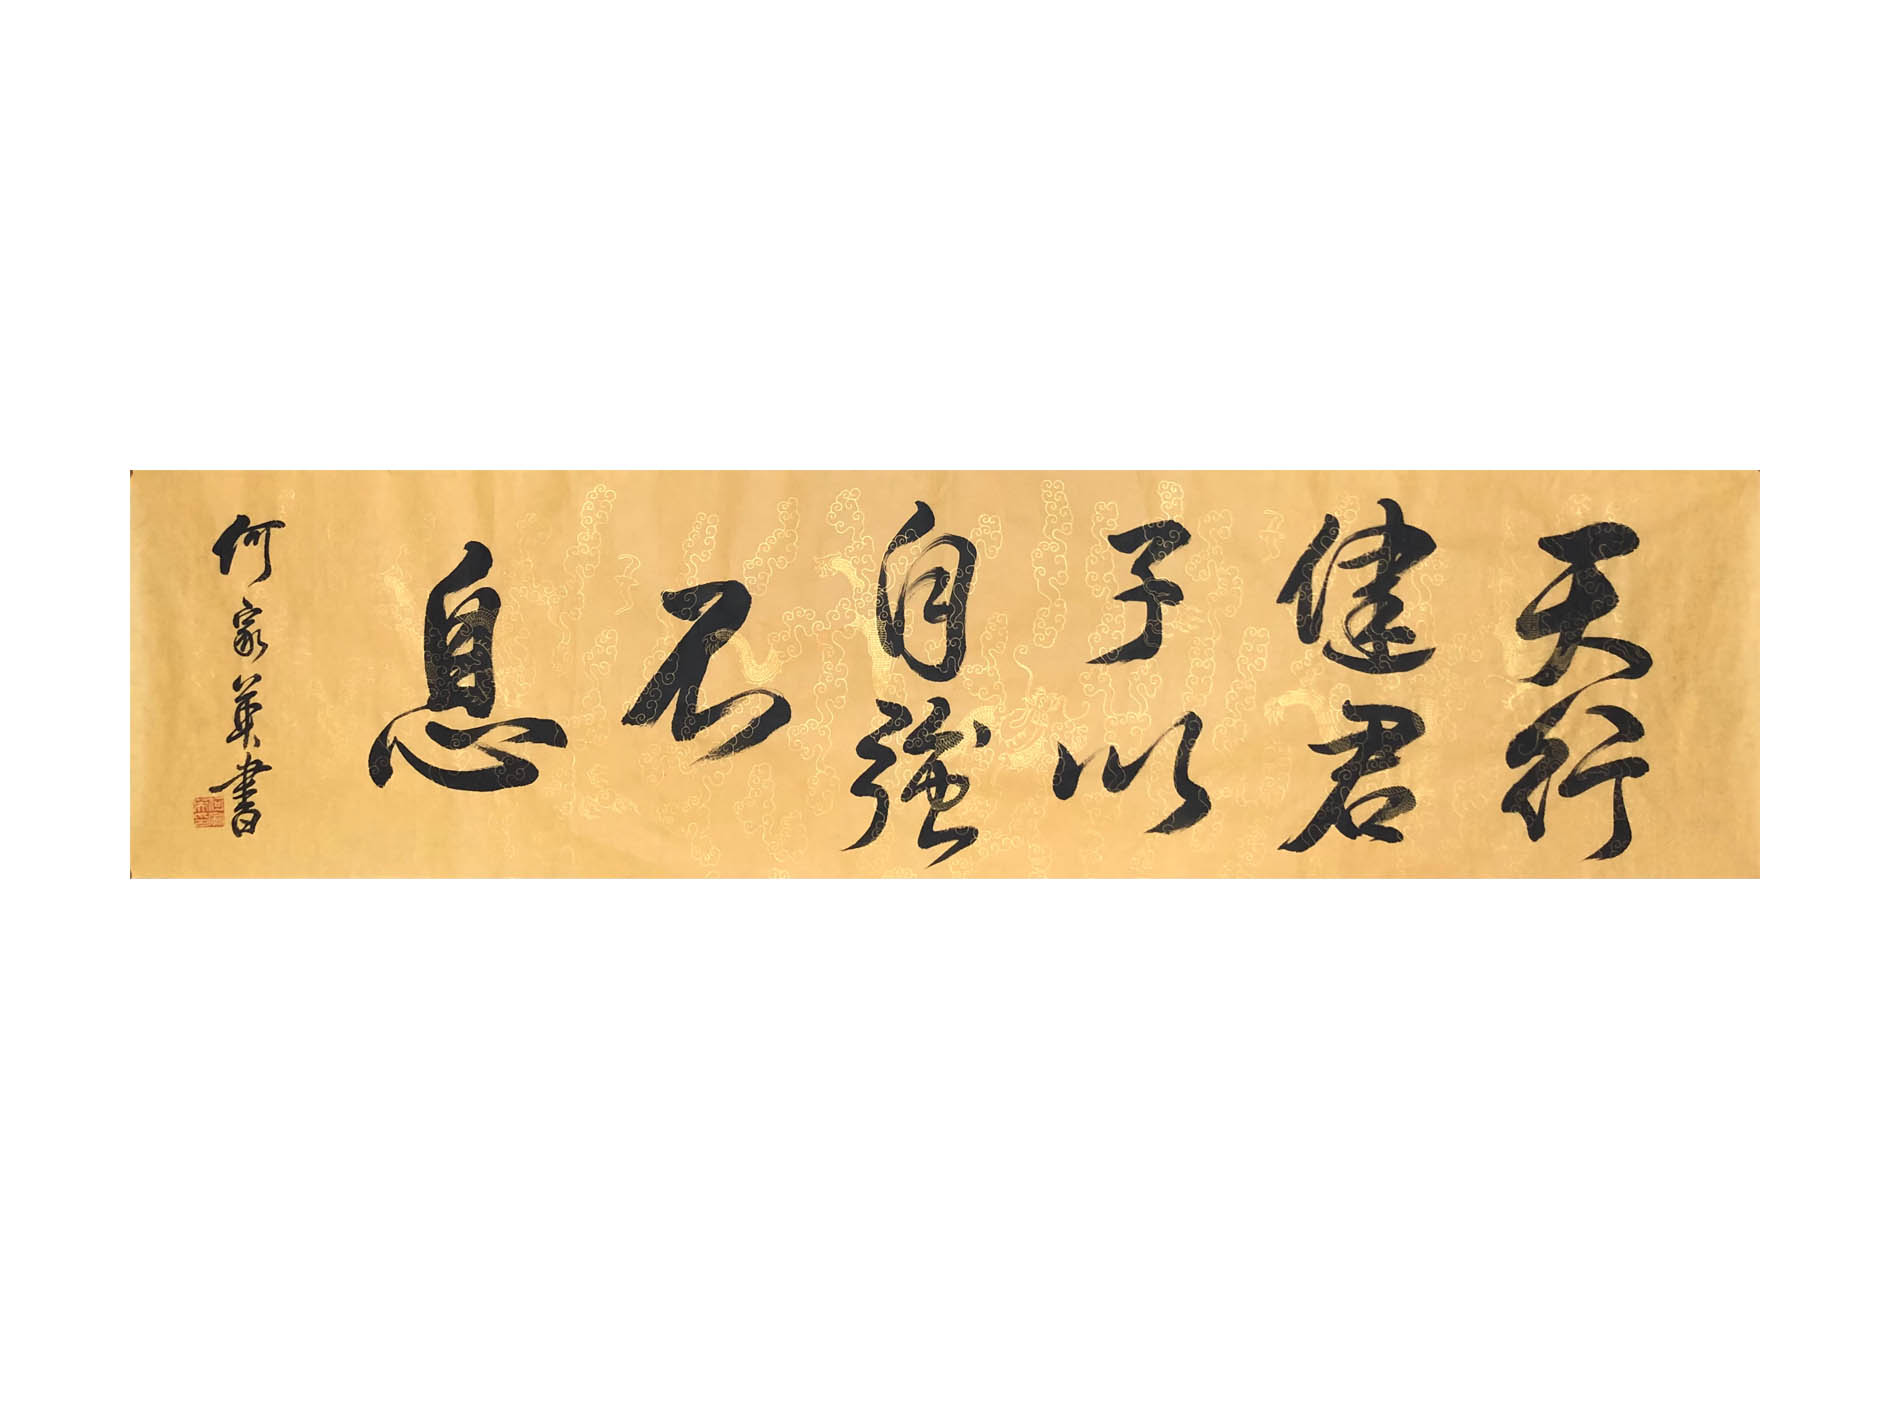 天行
健君
子以
自強
不
息
何家英書